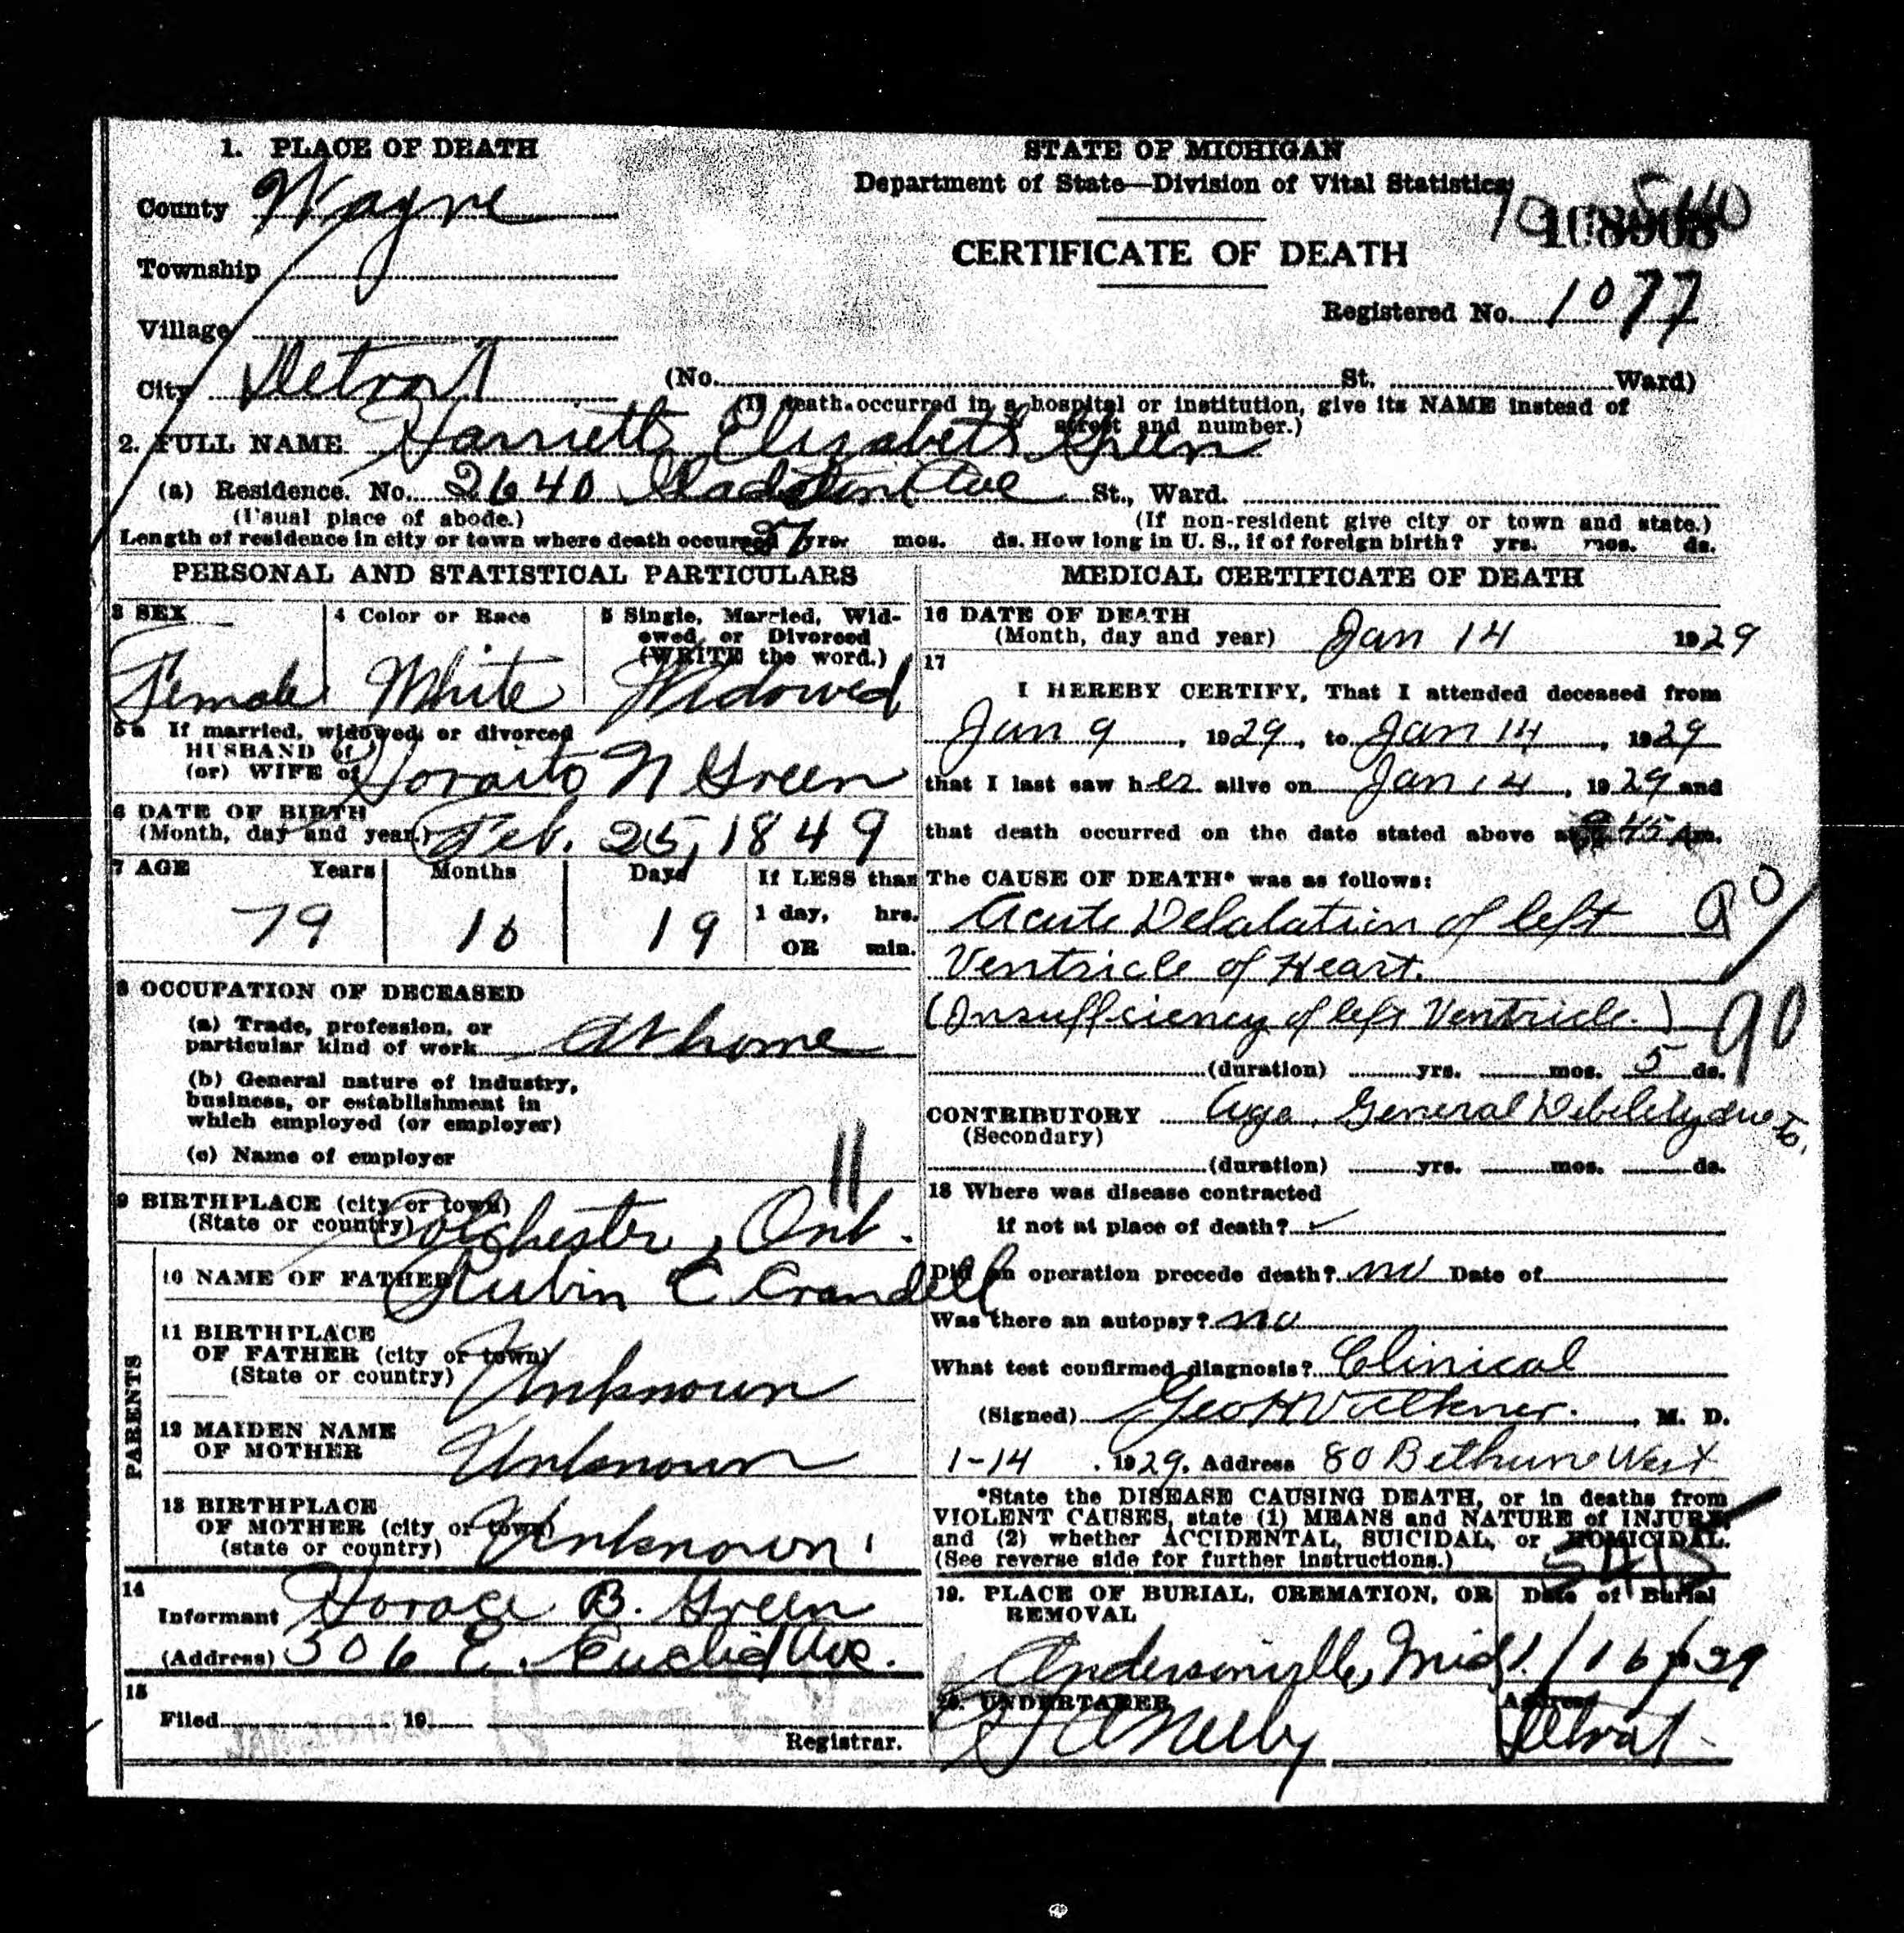 1. PLACE OF DEATH
County Wayne
Township
Village
City Detroit
STATE OF MICHIGAN
Department of State—Division of Vital Statistics
108908
CERTIFICATE OF DEATH
Registered No. 1077
(No. St. Ward)
(If death occurred in a hospital or institution, give its NAME instead of
street and number.)
2. FULL NAME Harriett Elizabeth Green
(a) Residence. No. 2640 Gladstone Ave St., Ward.
(Usual place of abode.) (If non-resident give city or town and state.)
Length of residence in city or town where death occurred yrs. mos. ds. How long in U. S., if of foreign birth? yrs. mos. ds.
PERSONAL AND STATISTICAL PARTICULARS
3 SEX
Female
4 Color or Race
White
5 Single, Married, Wid-
owed, or Divorced
(WRITE the word.)
Widowed
5a If married, widowed, or divorced
HUSBAND of
(or) WIFE of Horaito N Green
6 DATE OF BIRTH
(Month, day and year.) Feb. 25, 1849
7 AGE Years Months Days If LESS than
1 day, hrs.
OR min.
79 10 19
8 OCCUPATION OF DECEASED
(a) Trade, profession, or
particular kind of work At home
(b) General nature of industry,
business, or establishment in
which employed (or employer)
(c) Name of employer
11
9 BIRTHPLACE (city or town)
(State or country) Colchester, Ont.
PARENTS
10 NAME OF FATHER Rubin C Crandell
11 BIRTHPLACE
OF FATHER (city or town)
(State or country) Unknown
12 MAIDEN NAME
OF MOTHER Unknown
13 BIRTHPLACE
OF MOTHER (city or town)
(state or country) Unknown
14
Informant Horace B. Green
(Address) 506 E. Euclid Ave.
15
Filed 19
Registrar.
MEDICAL CERTIFICATE OF DEATH
16 DATE OF DEATH
(Month, day and year) Jan 14 1929
17
I HEREBY CERTIFY, That I attended deceased from
Jan 9, 1929, to Jan 14, 1929
that I last saw her alive on Jan 14, 1929 and
that death occurred on the date stated above at 45 Am.
The CAUSE OF DEATH* was as follows:
Acute Delalation of left 90
Ventricle of Heart.
(Insufficiency of left Ventricle.) 90
(duration) yrs. mos. 5 ds.
CONTRIBUTORY Age, General Debelity due to.
(Secondary)
(duration) yrs. mos. ds.
18 Where was disease contracted
if not at place of death?
Did an operation precede death? no Date of
Was there an autopsy? no
What test confirmed diagnosis? Clinical
(Signed) Geo H Voelkner. , M. D.
1-14 . 1929. Address 80 Bethune West
*State the DISEASE CAUSING DEATH, or in deaths from
VIOLENT CAUSES, state (1) MEANS and NATURE of INJURY,
and (2) whether ACCIDENTAL, SUICIDAL, or HOMICIDAL.
(See reverse side for further instructions.)
19. PLACE OF BURIAL, CREMATION, OR
REMOVAL
Andersonville, Mich
Date of Burial
1/16/29
20. UNDERTAKER
Address
Detroit